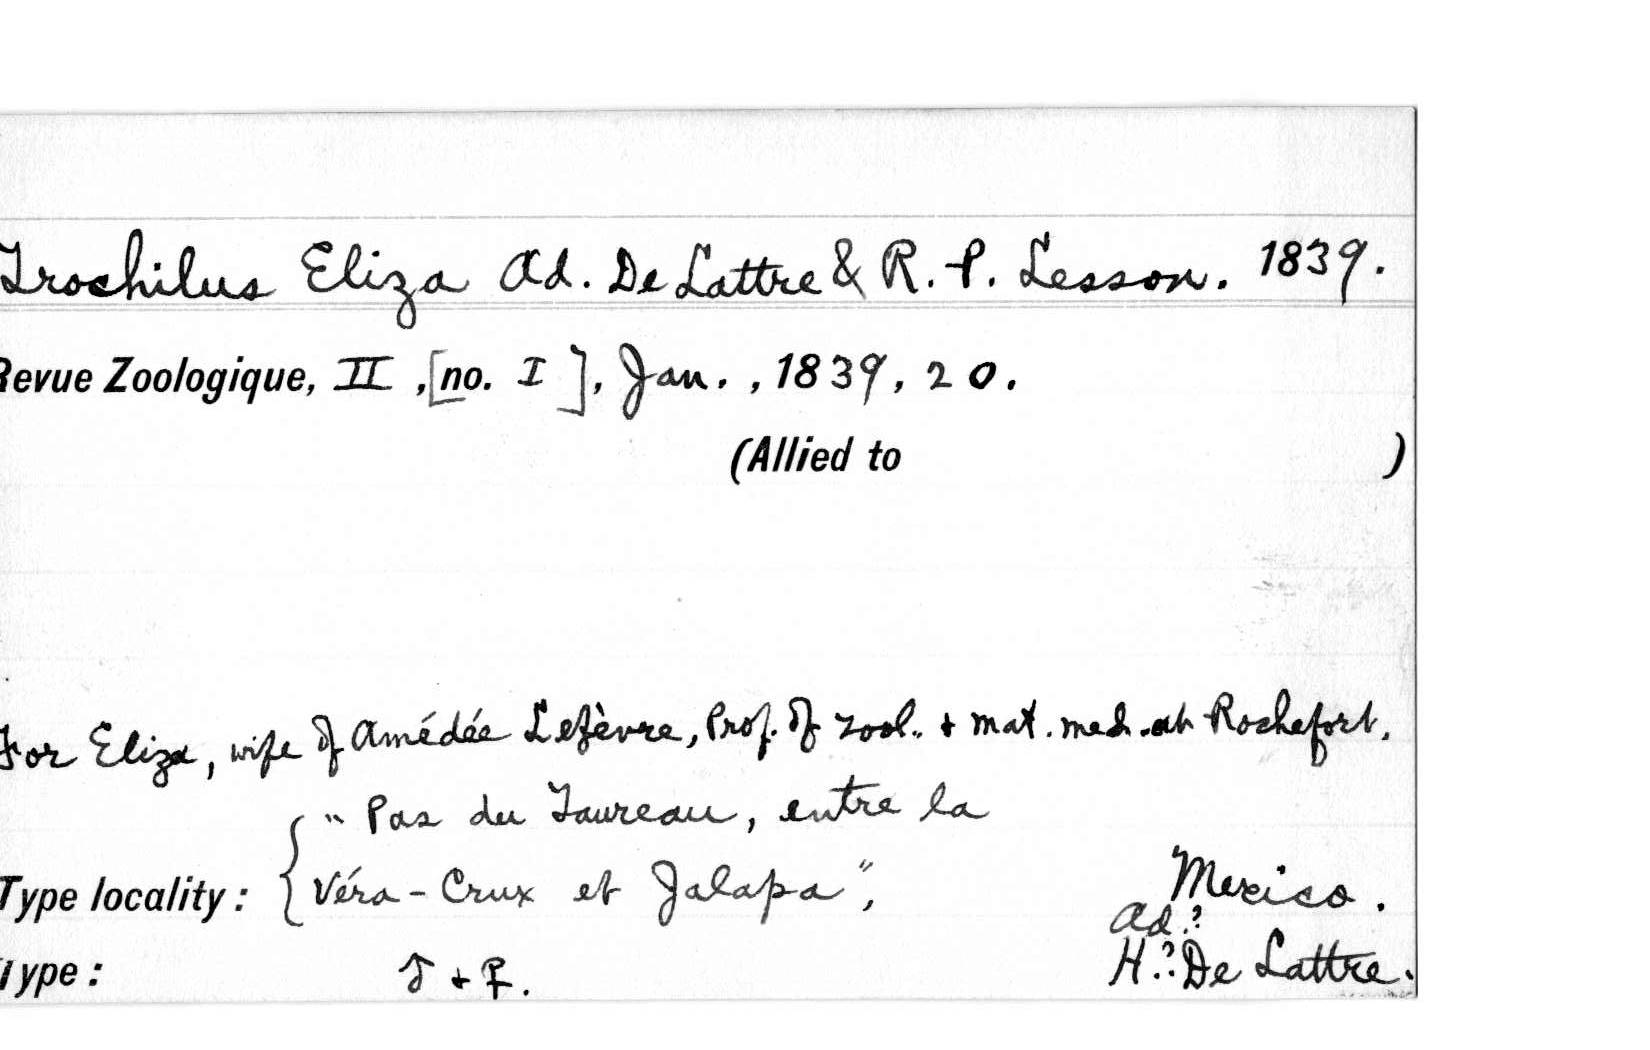 Trochilus Eliza Ad. De Lattre & R. P. Lesson. 1839.
Revue Zoologique, II, [no. I], Jan., 1839, 20.
(Allied to )
For Eliza, wife of Amédée Lefèvre, Prof. of zool. + mat. med. at Rochefort.
"Pas du Taureau, entre la
Type locality: { Véra-Crux et Jalapa", Mexico.
Ad.?
Type: ♂ + ♀. H.? De Lattre.